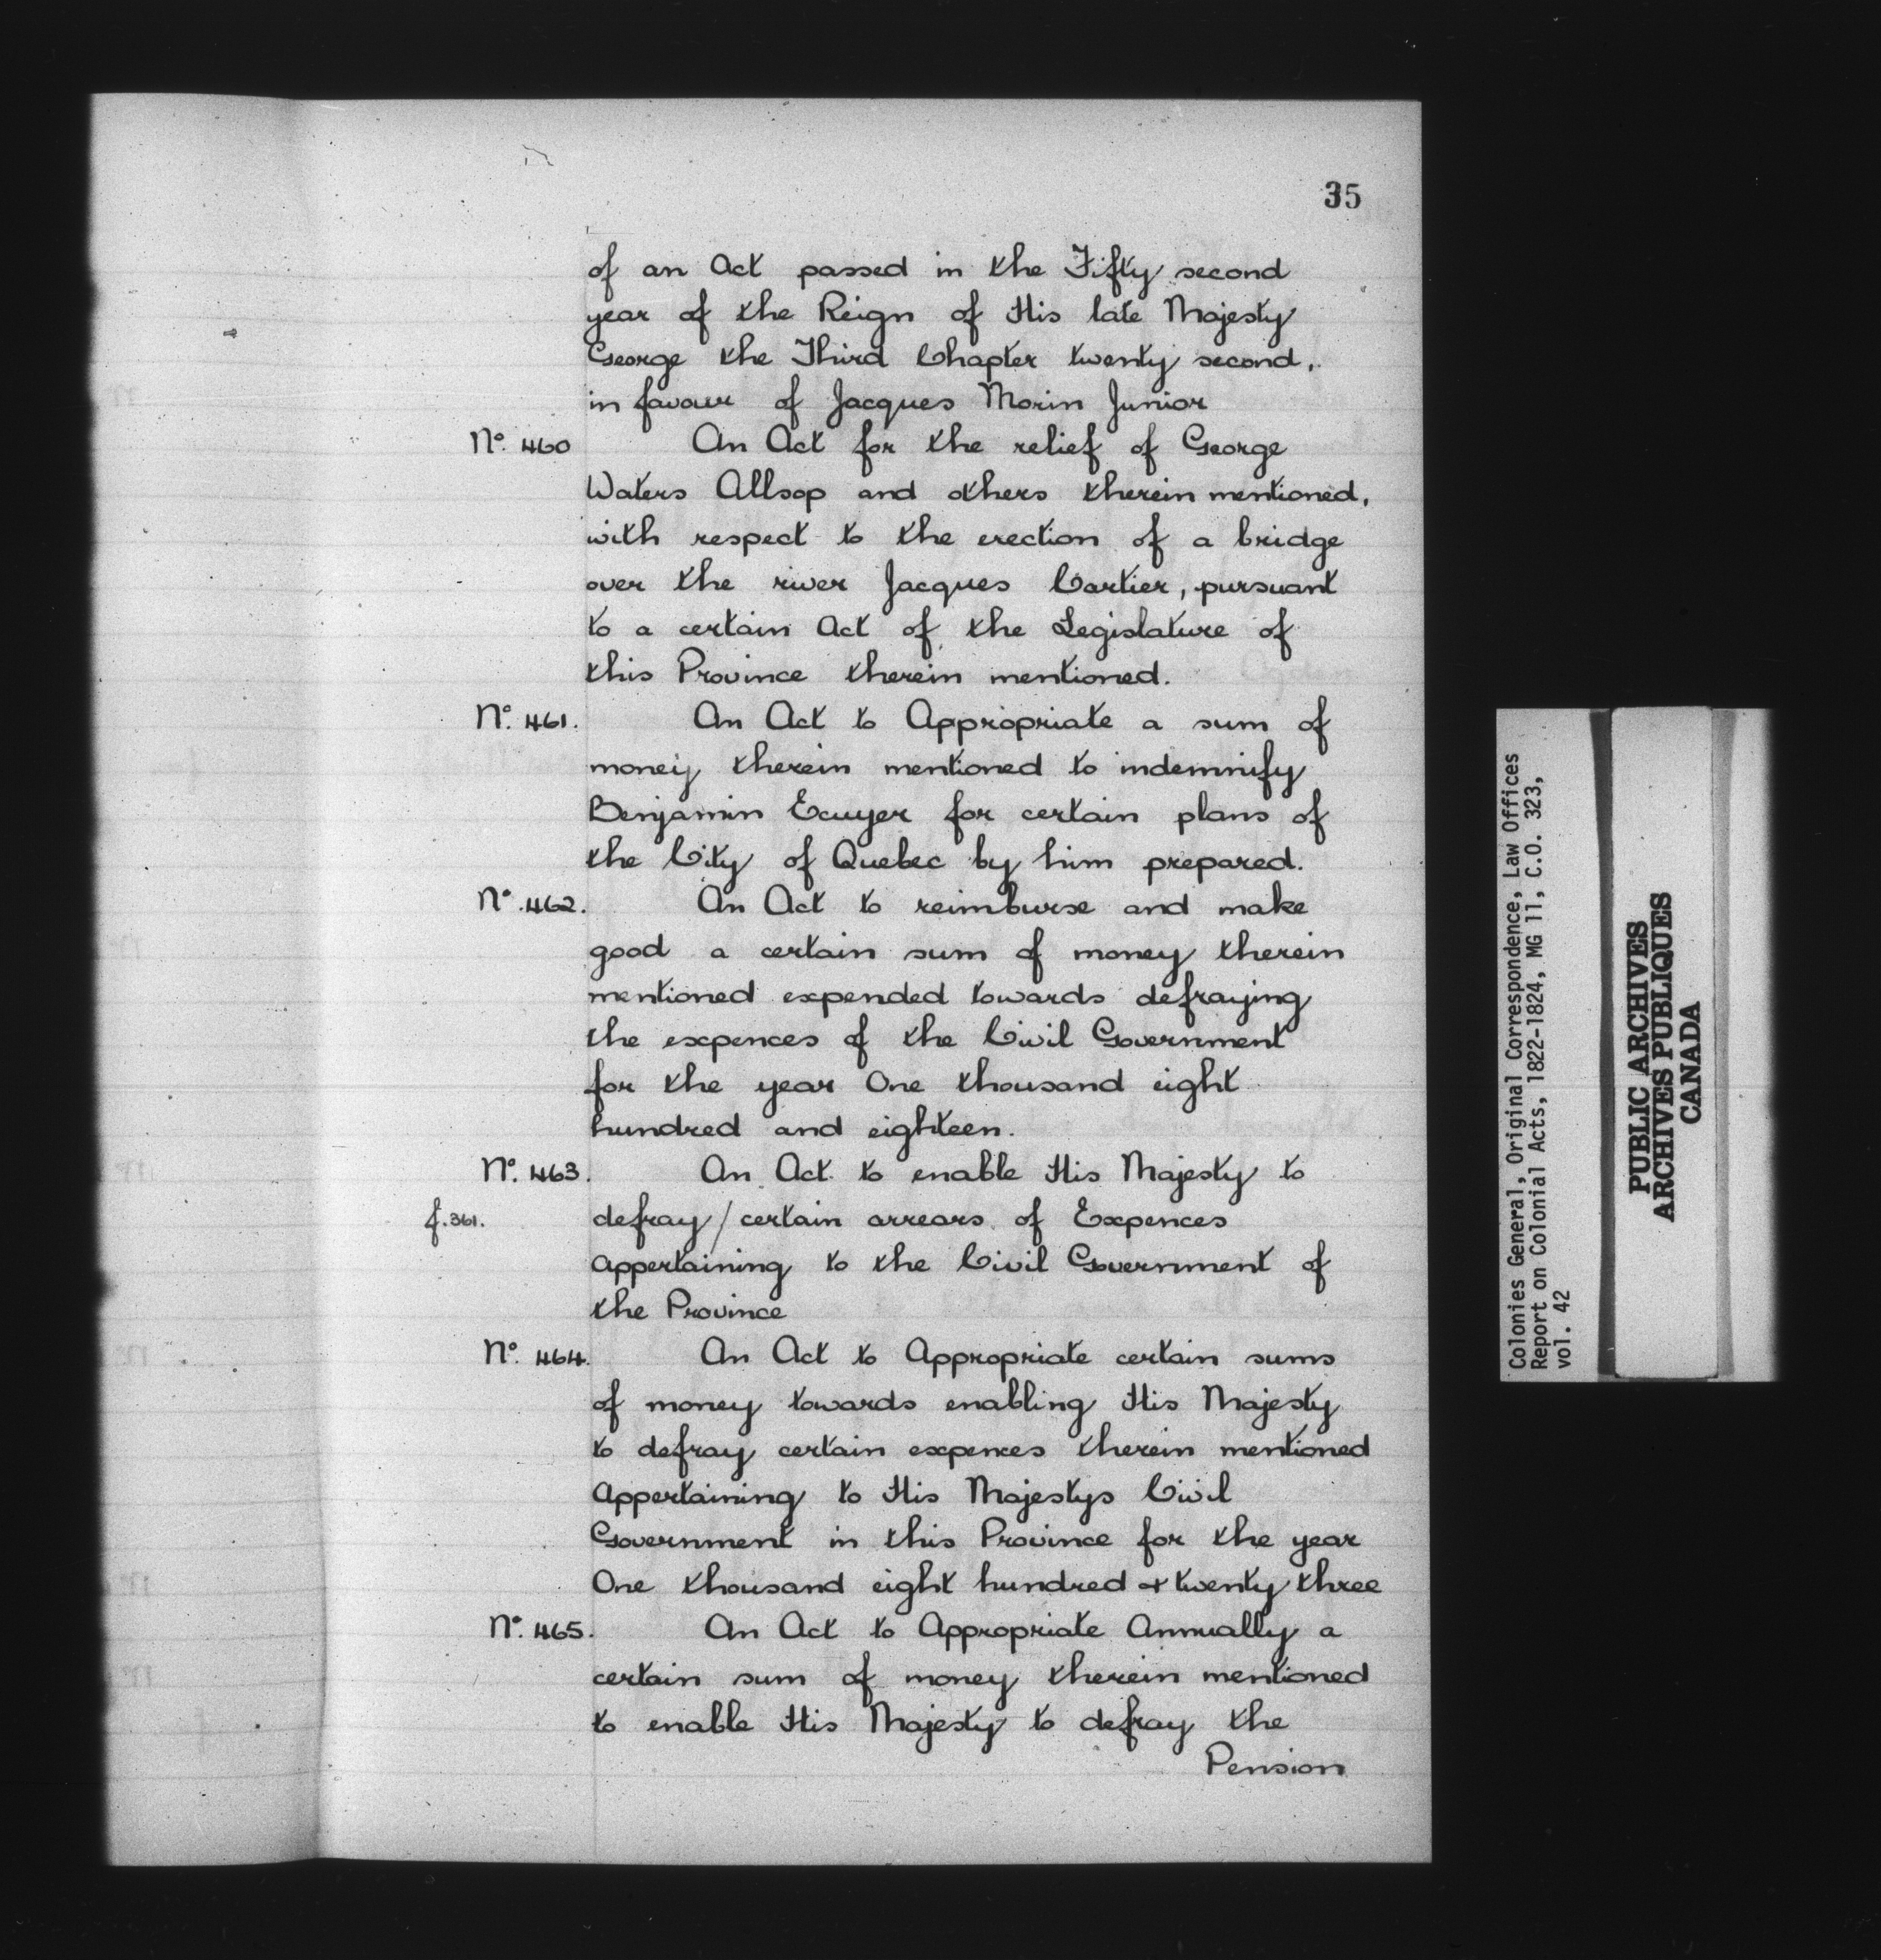 35
of an Act passed in the Fifty second
year of the Reign of His late Majesty
George the Third Chapter twenty second,
in favour of Jacques Morin Junior
No. 460 An Act for the relief of George
Waters Allsop and others therein mentioned,
with respect to the erection of a bridge
over the river Jacques Cartier, pursuant
to a certain Act of the Legislature of
this Province therein mentioned.
No. 461. An Act to Appropriate a sum of
money therein mentioned to indemnify
Benjamin Ecuyer for certain plans of
the City of Quebec by him prepared.
No. 462. An Act to reimburse and make
good a certain sum of money therein
mentioned expended towards defraying
the expences of the Civil Government
for the year One thousand eight
hundred and eighteen.
No. 463. An Act to enable His Majesty to
f. 361. defray / certain arrears of Expences
appertaining to the Civil Government of
the Province
No. 464. An Act to Appropriate certain sums
of money towards enabling His Majesty
to defray certain expences therein mentioned
appertaining to His Majestys Civil
Government in this Province for the year
One thousand eight hundred & twenty three
No. 465. An Act to Appropriate Annually a
certain sum of money therein mentioned
to enable His Majesty to defray the
Pension
Colonies General, Original Correspondence, Law Offices
Report on Colonial Acts, 1822-1824, MG 11, C.O. 323,
vol. 42
PUBLIC ARCHIVES
ARCHIVES PUBLIQUES
CANADA